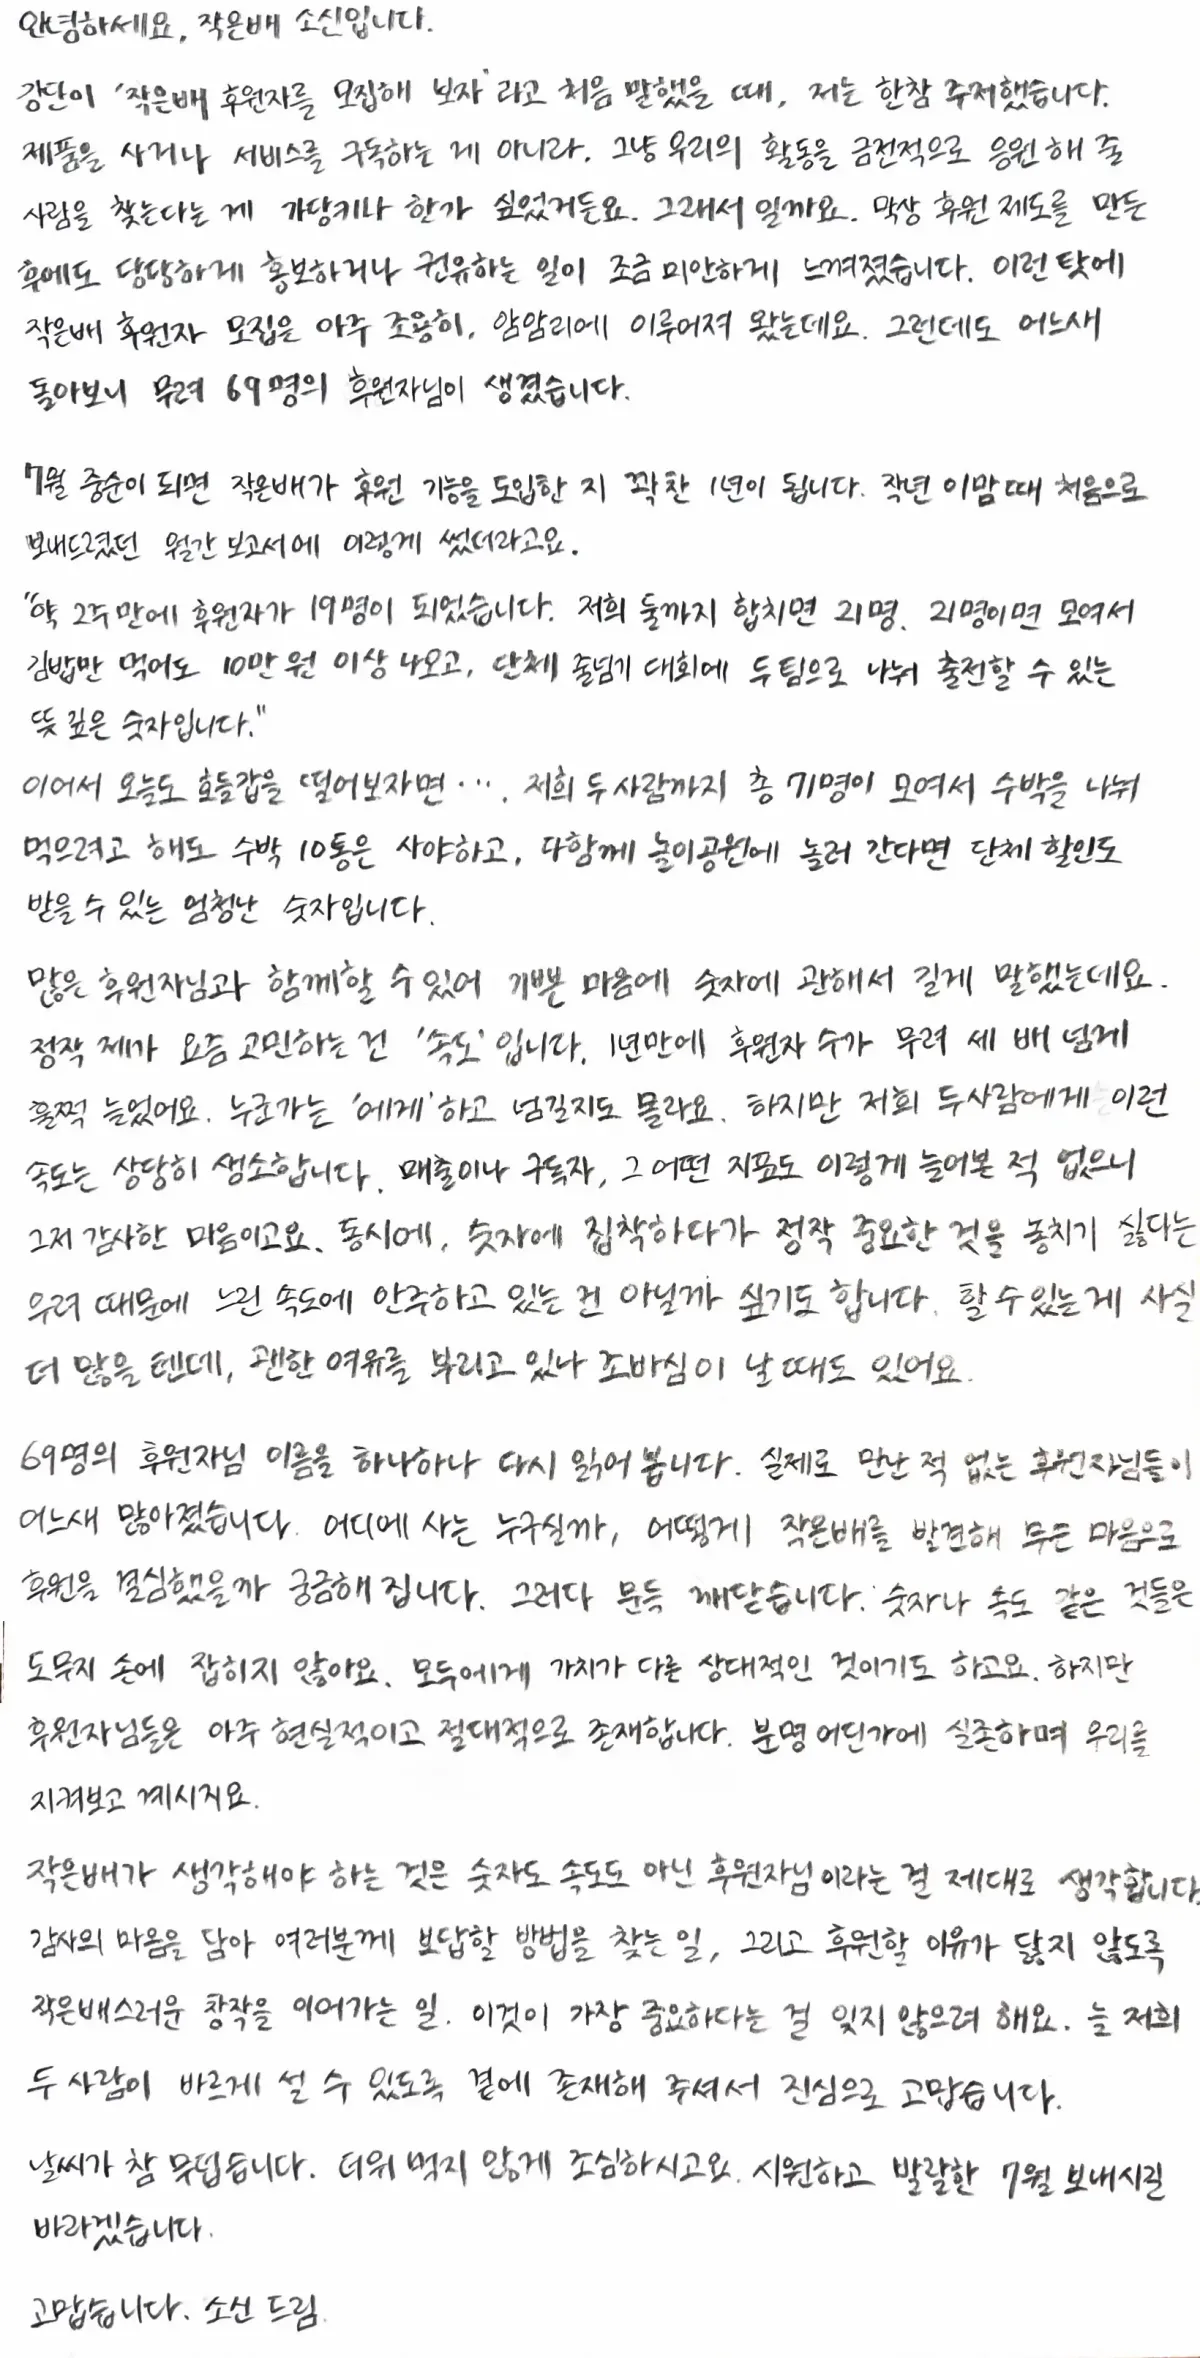 안녕하세요, 작은배 소신입니다.
강단이 '작은배 후원자를 모집해 보자'라고 처음 말했을 때, 저는 한참 주저했습니다.
제품을 사거나 서비스를 구독하는 게 아니라. 그냥 우리의 활동을 금전적으로 응원해 줄
사람을 찾는다는 게 가당키나 한가 싶었거든요. 그래서일까요. 막상 후원 제도를 만든
후에도 당당하게 홍보하거나 권유하는 일이 조금 미안하게 느껴졌습니다. 이런 탓에
작은배 후원자 모집은 아주 조용히, 암암리에 이루어져 왔는데요. 그런데도 어느새
돌아보니 무려 69명의 후원자님이 생겼습니다.
7월 중순이 되면 작은배가 후원 기능을 도입한 지 꽉 찬 1년이 됩니다. 작년 이맘때 처음으로
보내드렸던 월간 보고서에 이렇게 썼더라고요.
"약 2주만에 후원자가 19명이 되었습니다. 저희 둘까지 합치면 21명. 21명이면 모여서
김밥만 먹어도 10만 원 이상 나오고, 단체 줄넘기 대회에 두 팀으로 나눠 출전할 수 있는
뜻 깊은 숫자입니다."
이어서 오늘도 호들갑을 떨어보자면…. 저희 두 사람까지 총 71명이 모여서 수박을 나눠
먹으려고 해도 수박 10통은 사야하고, 다함께 놀이공원에 놀러 간다면 단체 할인도
받을 수 있는 엄청난 숫자입니다.
많은 후원자님과 함께할 수 있어 기쁜 마음에 숫자에 관해서 길게 말했는데요.
정작 제가 요즘 고민하는 건 '속도'입니다. 1년만에 후원자 수가 무려 세 배 넘게
훌쩍 늘었어요. 누군가는 '에게'하고 넘길지도 몰라요. 하지만 저희 두 사람에게 이런
속도는 상당히 생소합니다. 매출이나 구독자, 그 어떤 지표도 이렇게 늘어본 적 없으니
그저 감사한 마음이고요. 동시에, 숫자에 집착하다가 정작 중요한 것을 놓치기 싫다는
우려 때문에 느린 속도에 안주하고 있는 건 아닐까 싶기도 합니다. 할 수 있는 게 사실
더 많을 텐데, 괜한 여유를 부리고 있나 조바심이 날 때도 있어요.
69명의 후원자님 이름을 하나하나 다시 읽어 봅니다. 실제로 만난 적 없는 후원자님들이
어느새 많아졌습니다. 어디에 사는 누구실까, 어떻게 작은배를 발견해 무슨 마음으로
후원을 결심했을까 궁금해집니다. 그러다 문득 깨닫습니다. 숫자나 속도 같은 것들은
도무지 손에 잡히지 않아요. 모두에게 가치가 다른 상대적인 것이기도 하고요. 하지만
후원자님들은 아주 현실적이고 절대적으로 존재합니다. 분명 어딘가에 실존하며 우리를
지켜보고 계시지요.
작은배가 생각해야 하는 것은 숫자도 속도도 아닌 후원자님이라는 걸 제대로 생각합니다.
감사의 마음을 담아 여러분께 보답할 방법을 찾는 일, 그리고 후원할 이유가 닳지 않도록
작은배스러운 창작을 이어가는 일. 이것이 가장 중요하다는 걸 잊지 않으려 해요. 늘 저희
두 사람이 바르게 설 수 있도록 곁에 존재해 주셔서 진심으로 고맙습니다.
날씨가 참 무덥습니다. 더위 먹지 않게 조심하시고요. 시원하고 발랄한 7월 보내시길
바라겠습니다.
고맙습니다. 소신 드림.